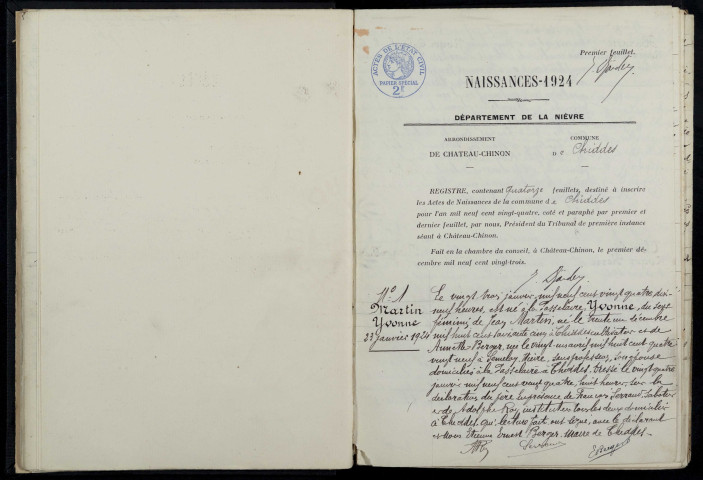 Premier feuillet.
ACTES DE L'ÉTAT CIVIL
PAPIER SPÉCIAL
2f
NAISSANCES-1924
DÉPARTEMENT DE LA NIÈVRE
ARRONDISSEMENT
DE CHATEAU-CHINON
COMMUNE
DE Chiddes
REGISTRE, contenant quatorze feuillets, destiné à inscrire
les Actes de Naissances de la commune de Chiddes
pour l'an mil neuf cent vingt-quatre, coté et paraphé par premier et
dernier feuillet, par nous, Président du Tribunal de première instance
séant à Château-Chinon.
Fait en la chambre du conseil, à Château-Chinon, le premier dé-
cembre mil neuf cent vingt-trois.
No 1
Martin
Yvonne
23 janvier 1924
Le vingt trois janvier mil neuf cent vingt quatre, dix
neuf heures, est née à la Yvonne, du sexe
féminin de Jean Martin, né le trente un décembre
mil huit cent cultivateur et de
Annette Berger, née le vingt un avril mil huit cent quatre
vingt neuf à Nièvre, sans profession, son épouse
domiciliés à la à Chiddes. Dressé le vingt quatre
janvier mil neuf cent vingt quatre, huit heures, sur la
déclaration du père en présence de François
et de Adolphe Roy, instituteur tous les deux domiciliés
à Chiddes, qui, lecture faite, ont signé avec le déclarant
et Nous Etienne Ernest Berger, maire de Chiddes.